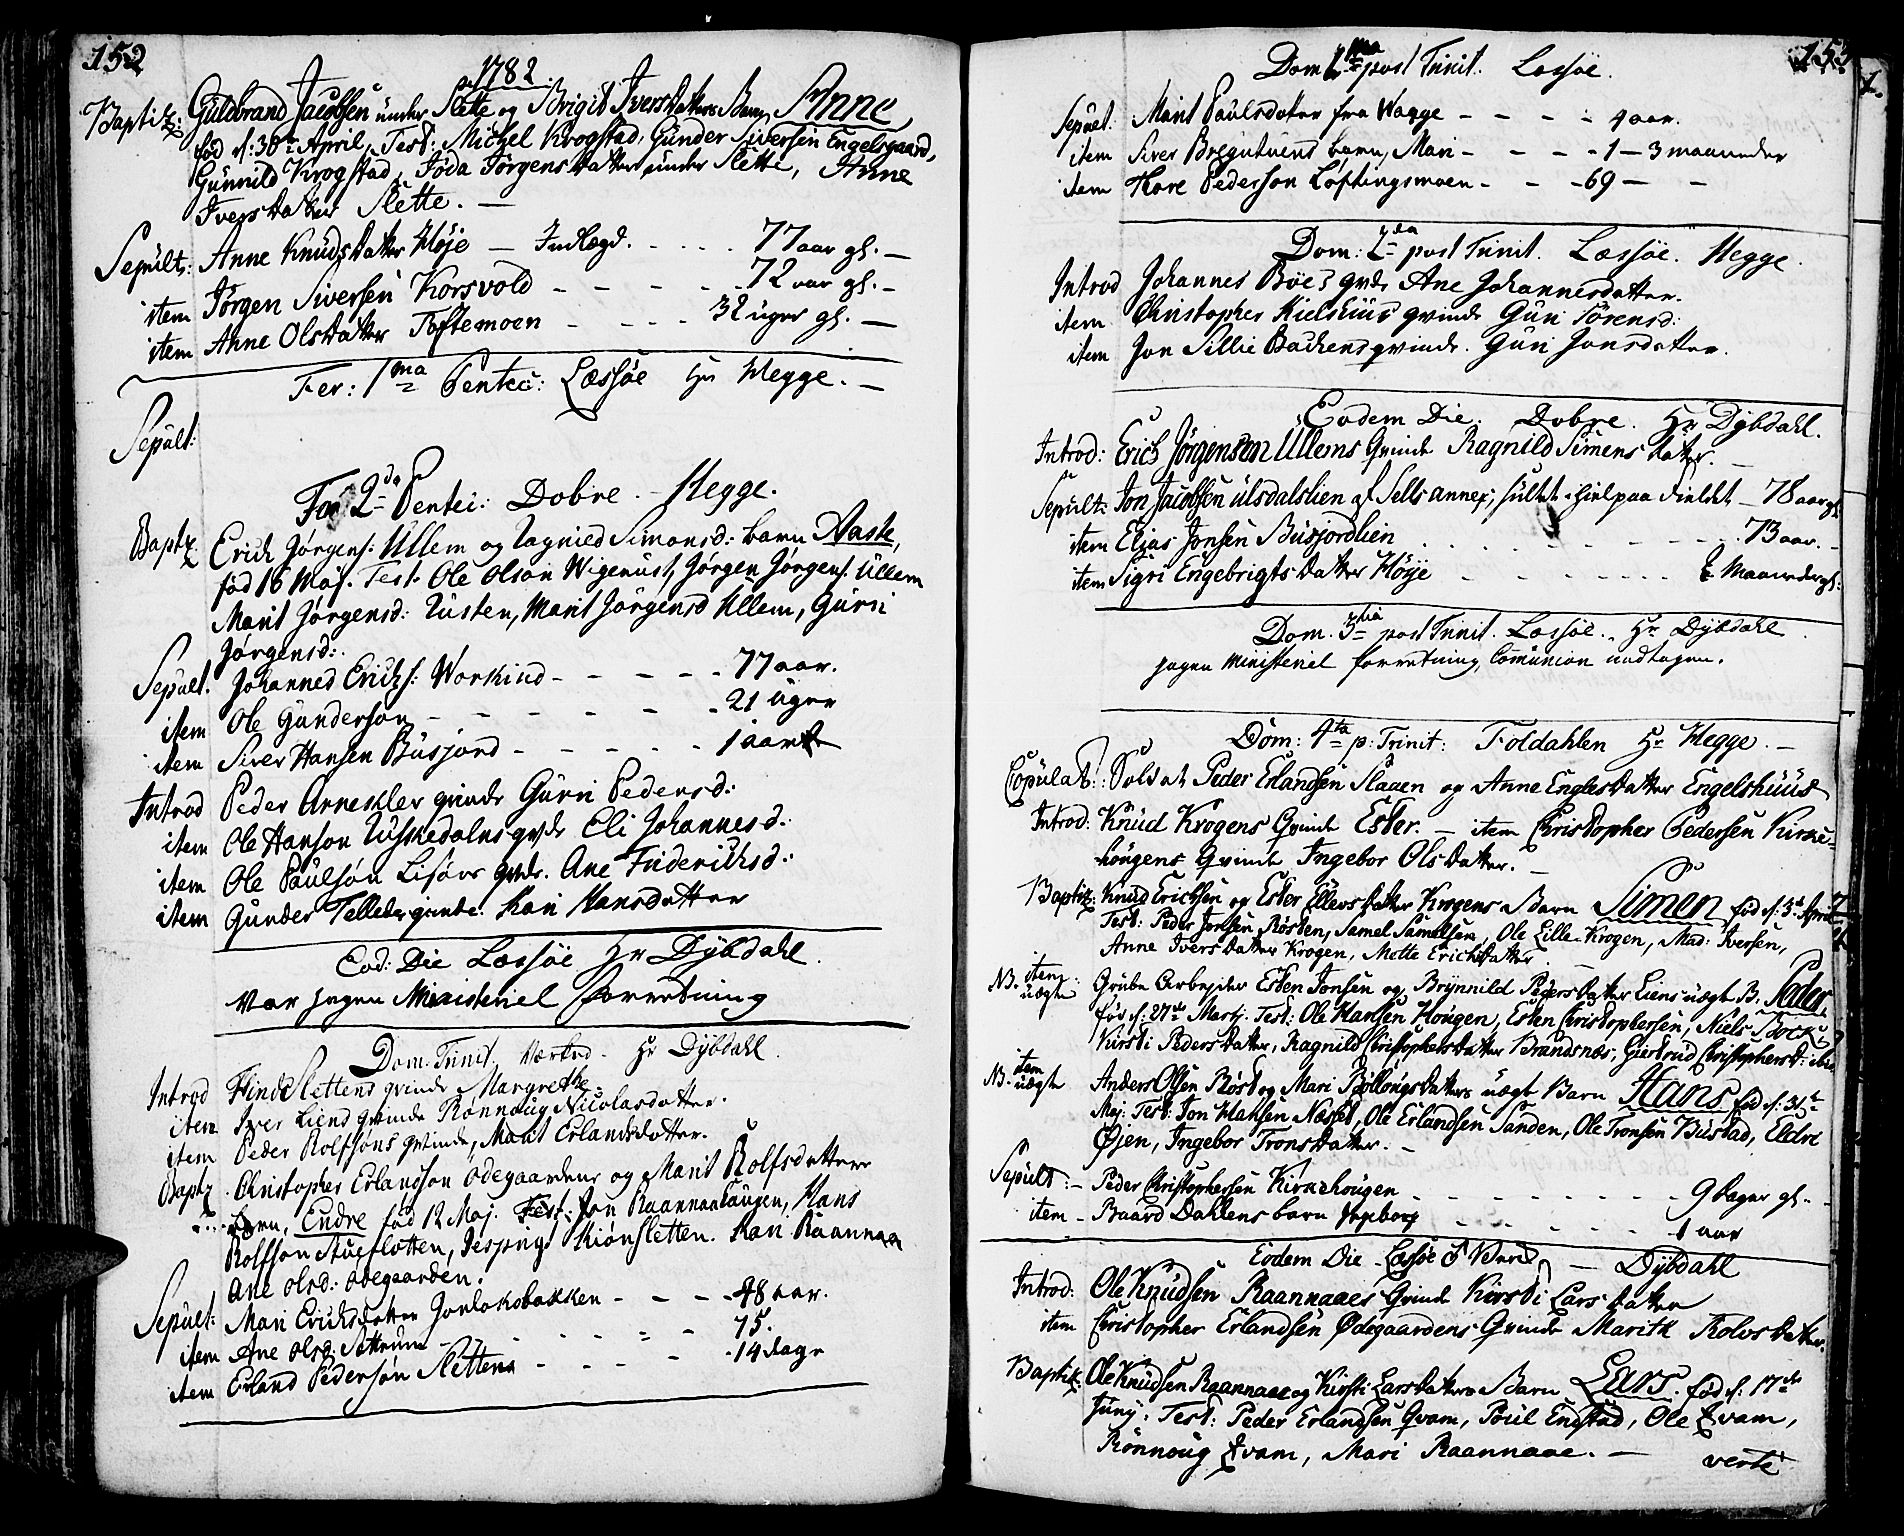 152
1782.
Baptiz: Guldbrand Jacobsen under Slette og Brigit Iversdatters Barn, Anne,
fød d: 30te April, Test: Michel Krogstad, Gunder Siversen Engelsgaard,
Gunnild Krogstad, Jøda Jørgensdatter under Slette, Anne
Iversdatter Slette. —
Sepült: Anne Knudsdatter Høje — Indlægd. . . . . 77 aar gl. —
item Jørgen Siversen Korsvold - - - - - 72 aar gl. -
item Anne Olsdatter Toftemoen - - - - 32 uger gl. —
Fer: 1ma Pentec: Læssøe Hr Hegge. —
Sepult:
Fer 2da Pentec: Dobre. - Hegge.
Baptz: Erich Jørgens: Ullem og Ragnild Simensd: barn Aaste,
fød 16 Maj. Test. Ole Olson Wigenust, Jørgen Jørgens. Ullem
Marit Jørgensd: Rusten, Marit Jørgensd Ullem, Guri
Jørgensd:.
Sepult. Johannes Erichs: Workind - - - - - 77 aar.
item Ole Gunderson - - - - - - 21 uger
item Siver Hansen Büsjord - - - - - 1 aar
Introd Peder Arneklev qvinde Guri Pedersd:
item Ole Hanson qvde Eli Johannesd.
item Ole Paulsøn Lisøre qvde. Ane Friderichsd:
item Gunder Telledz qvinde. Kari Hansdatter
Eod: Die Læssøe Hr Dybdahl.
Var ingen Ministeriel forretning
Dom. Trinit. Hr Dybdahl.
Introd Find Slettens qvinde Margrethe
item Iver Liens qvinde Rønnoug Nicolasdatter.
item Peder Rolfsøns qvinde, Marit Erlandsdatter.
Baptz. Christopher Erlandson Ødegaardens og Marit Rolfsdatters
barn, Endre fød 12 Maj. Test. Jon Raannaalaugen, Hans
Rolfson Stugflotten, Kiønsletten. Kari Raannaa
Ane Olsd. Ødegaarden.
Sepult: Mari Erichsdatter Jordakobakken - - - - 48 aar.
item Ane Olsd. - - - - 75.
item Erland Pedersøn Sletten - - - - 14 dage
153
Dom 1ma post Trinit. Læssøe.
Sepult. Marit Paulsdater fra Wagge - - - - 4 aar.
item Siver barn, Mari - - - - 1 - 3 maaneder
item Thore Pederson Løftingsmoen - - - 69 - -
Dom: 2da post Trinit. Læssøe. Hegge.
Introd Johannes Bøes qvde Ane Johannesdatter.
item Christopher Kielshuus qvinde Guri Sørensd:
item Jon Lillie Backens qvinde. Guri Jonsdatter.
Eodem Die. Dobre. Hr Dybdahl.
Introd: Erich Jørgensen Ullems Qvinde Ragnild Simensdatter. —
Sepult: Jon Jacobsen ulsdalslien af Sells annex; sultet ihiel paa Fieldet - 78 aar gl:
item Elias Jonsen Büsjordlien . . . . . . . . 73 aar. -
item Sigri Engebrigtsdatter Høye . . . . . . . Maaneder gl:
Dom. 3tia post Trinit. Læssøe. Hr Dybdahl.
ingen Ministeriel forretning, Comunion undtagen.
Dom: 4ta p: Trinit: Foldahlen Hr Hegge. —
Copulat: Soldat Peder Erlandsen Slaaen og Anne Englesdatter Engelshuus
Introd: Knud Krogens Qvinde Ester. - item Christopher Pedersen Kirke-
hougens Qvinde Ingebor Olsdatter. —
Baptiz: Knud Erichsen og Ester Ellevsdatter Krogens Barn Simen fød d: 3de April
Test: Peder Jonsen Røsten, Samel Samelsen, Ole Lille-Krogen, Mad: Iversen,
Anne Iversdatter Krogen, Mette Erichsdatter.
NB. item uægte Grube Arbejder Esten Jonsen og Brynnild Pedersdatter Liens uægte B. Peder,
fød d: 27de Martj. Test: Ole Hansen Hougen, Esten Christophersen, Niels Bock,
Kirsti Pedersdatter, Ragnild Christophersdatter Brandsnæs, Giertrud Christophersd:
NB. item uægte Anders Olsen Røst og Mari Bollougsdatters uægte Barn Hans fød d: 31te
Maj: Test: Jon Hansen Næsset, Ole Erlandsen Sanden, Ole Tronsen Bustad, Eldri
Øjen, Ingebor Tronsdatter. —
Sepult: - Peder Christophersen Kirkehougen - - - - - - - 9 dager gl. -
item - Baard Dahlens barn Ingeborg - - - - - 1 aar
Eodem Die Læssøe — Dybdahl
Introd: Ole Knudsen Raannaaes Qvinde Kirsti Larsdatter
item Christopher Erlandsen Ødegaardens Qvinde Marith Rolvsdatter.
Baptiz: Ole Knudsen Raannaae og Kirsti Larsdatters Barn Lars. fød d: 17de
Junij: Test: Peder Erlandsen Qvam, Poul Enstad, Ole Qvam,
Rønnoug Qvam, Mari Raannaae. —
verte